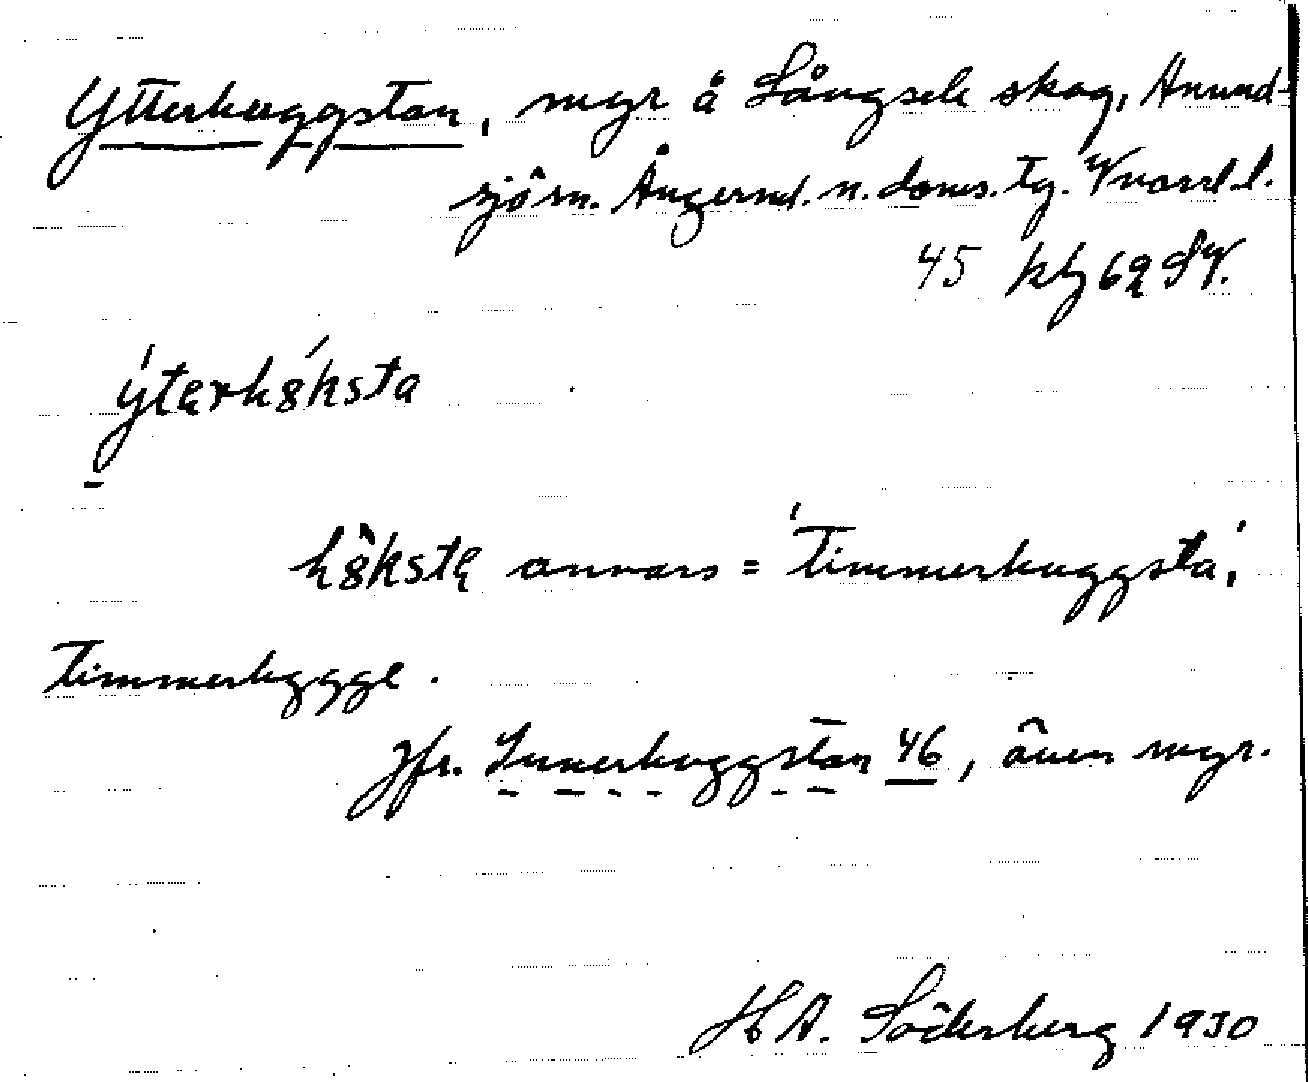 Ytterhuggstan, myr å Långsele skog, Anund-
sjö sn. Ångermd. n. doms. tg. Vvärrd. l.
45 kbj 62 SV.
ýtərhòksta
hòkstə annars = 'timmerhuggsta',
timmerhygge.
Jfr. Innerhuggstan 46, även myr.
H A. Söderberg 1930